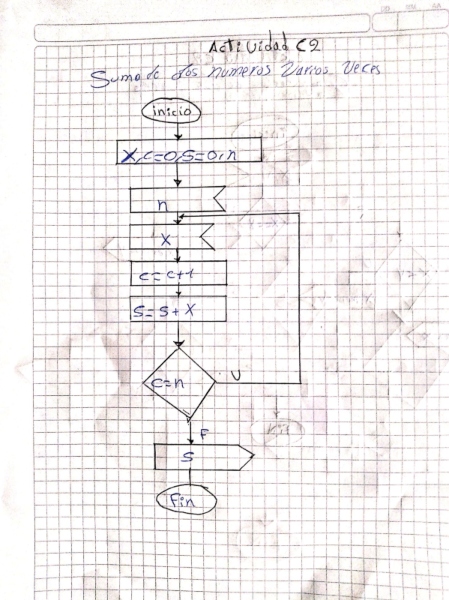 Actividad C2
Suma de dos numeros Varios Veces
inicio
X,c=0,S=0,n
n
X
c=c+1
S=S+X
c=n
V
F
S
Fin